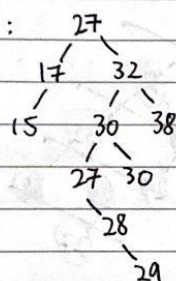 :
27
17 32
15 30 38
27 30
28
29